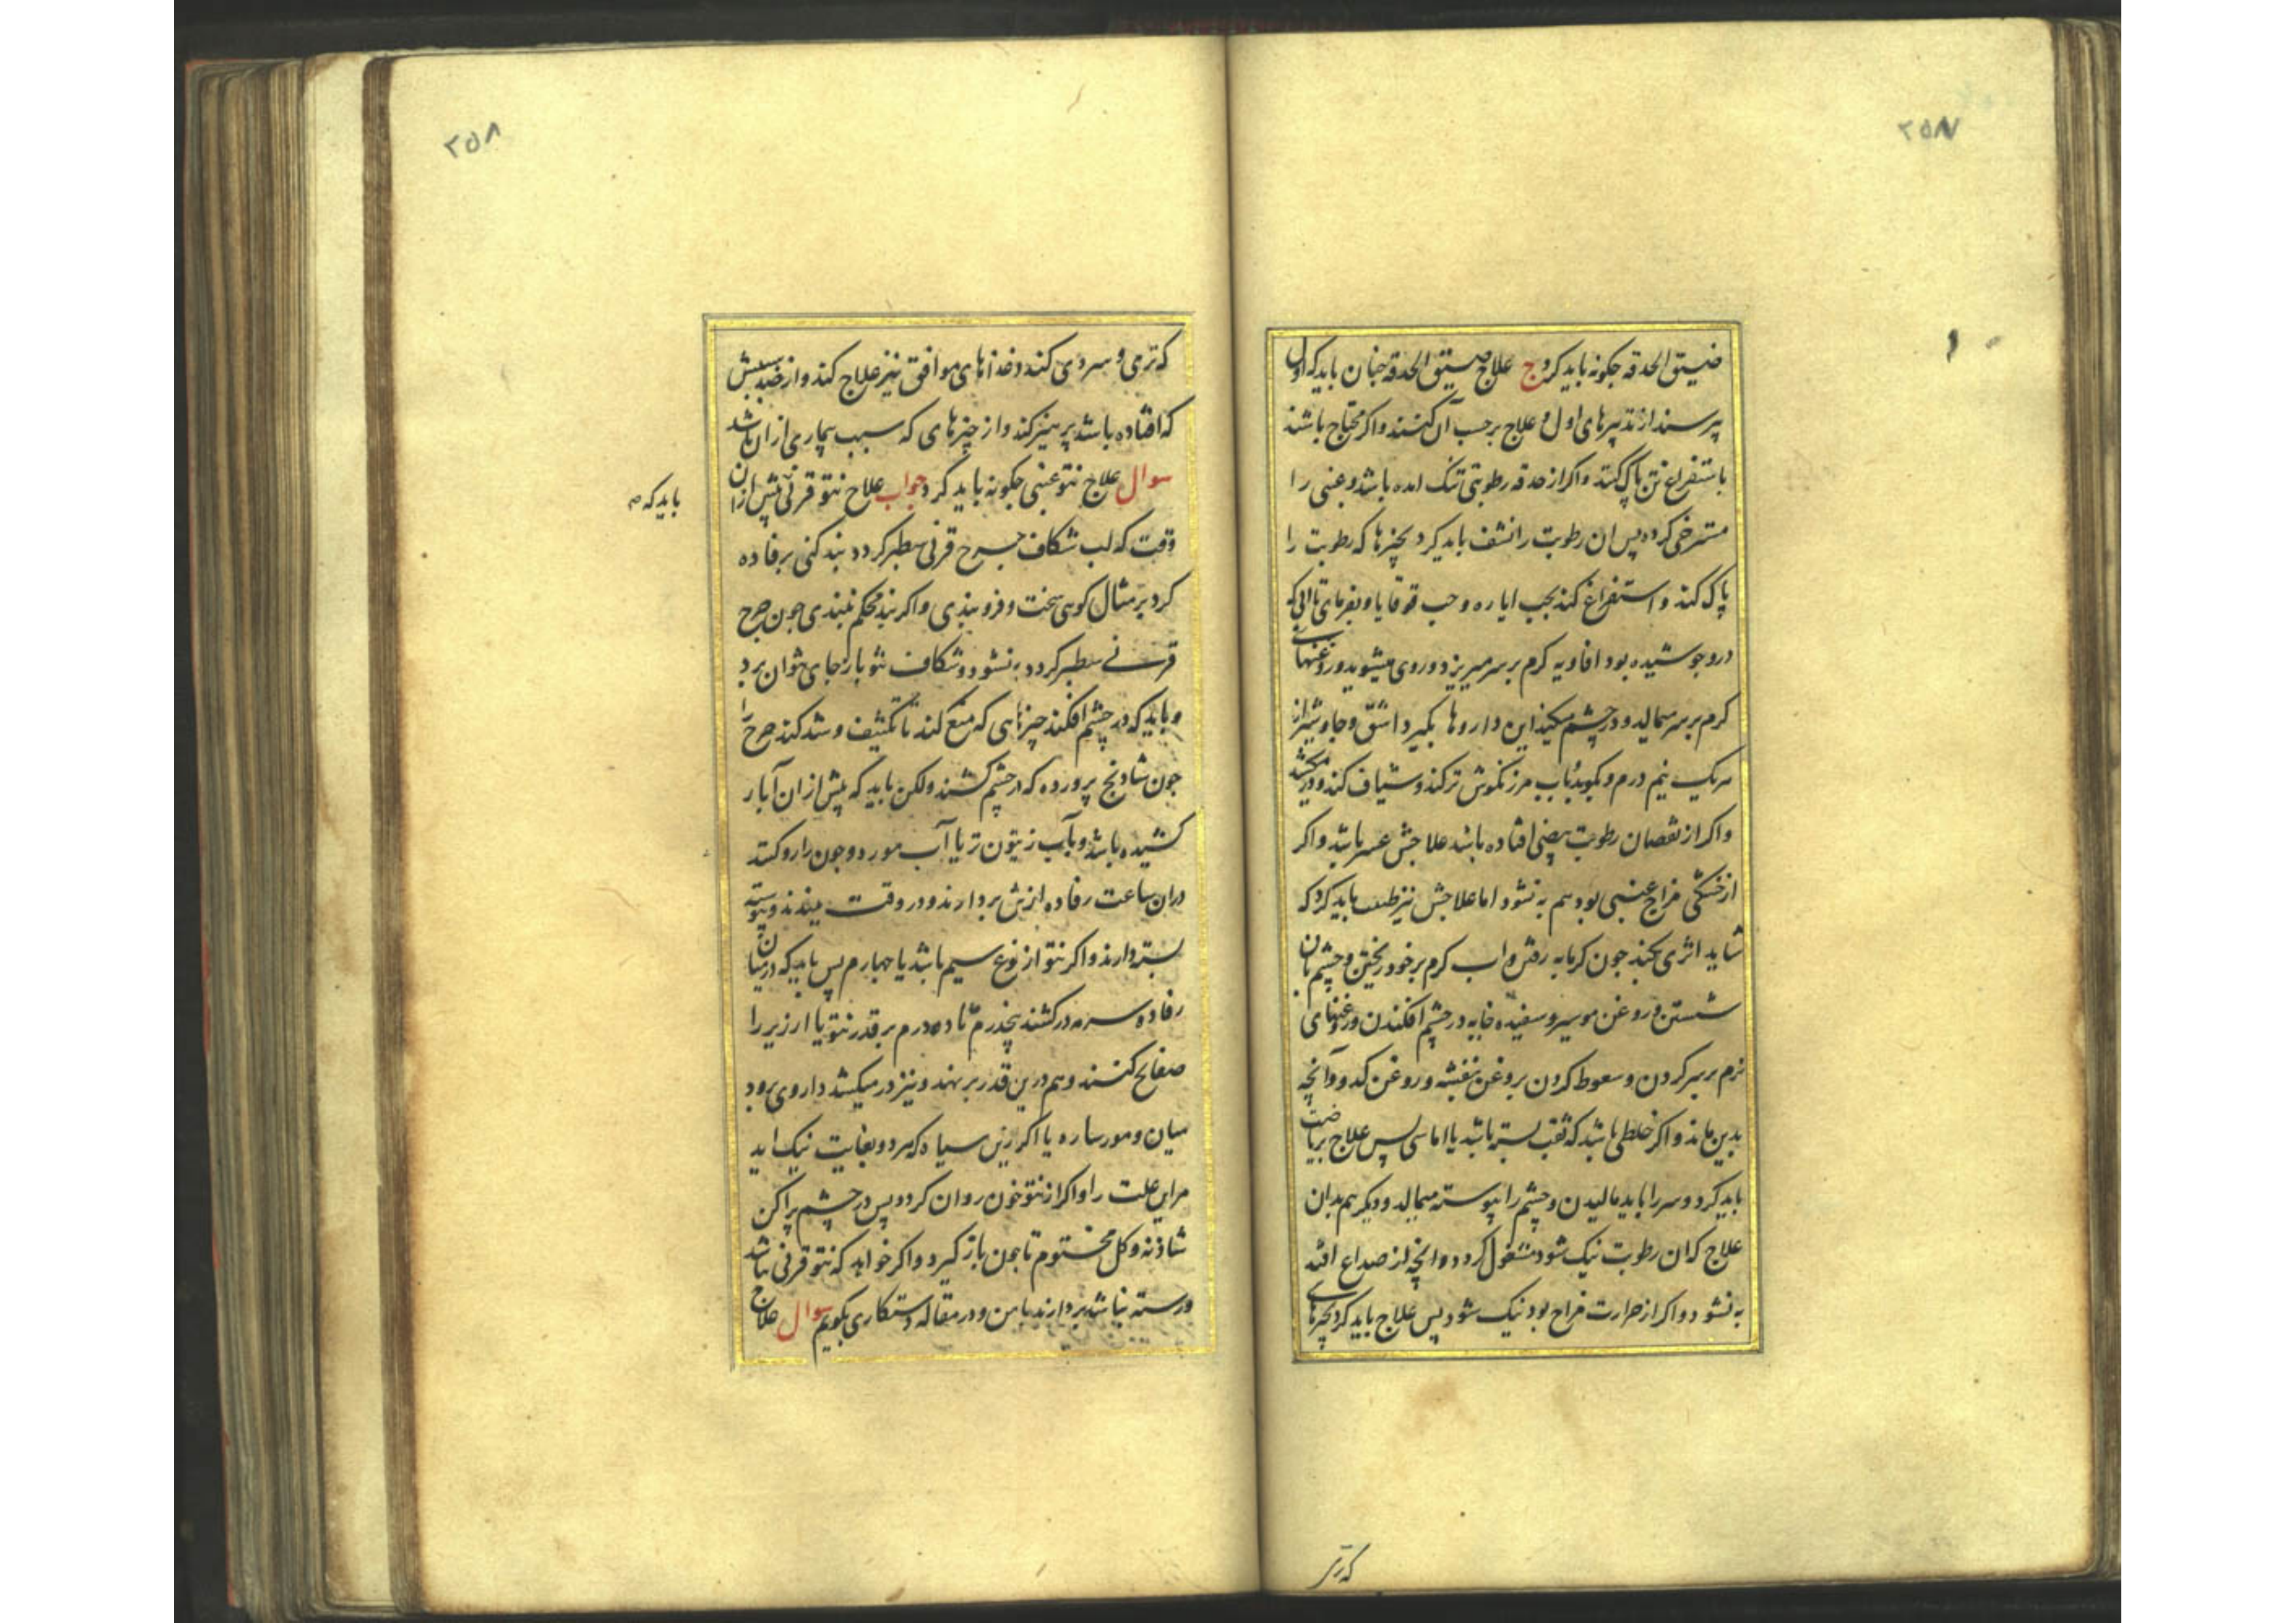 ۲۵۷
ضیق الحدقه جکونه باید کرد ج علاج ضیق الحدقه جنان باید که اول
پرسند از تدبیرهای اول و علاج برحسب آن کنند و اکر محتاج باشند
باستفراغ تن پاک کنند و اکر از حدقه رطوبتی تنک امده باشد و عنبی را
مسترخی کرده پس ان رطوبت را نشف باید کرد بچیزها که رطوبت را
پاک کند و استفراغ کند بحب ایاره و حب قوقایا و بفرمای تا ابی که
درو جوشیده بود افاویه کرم بر سر میریزد و روی میشوید و روغنهای
کرم بر سر میمالد و در چشم میکند این داروها بکیرد اشق و جاوشیر از
هریک نیم درم و بکوبد باب مرزنکوش تر کند و شیاف کند و در میکشد
و اکر از نقصان رطوبت بیضی افتاده باشد علاجش عسر باشد و اکر
از خشکی مزاج عنبی بود هم به نشود اما علاجش نیز طلب باید کرد که
شاید اثری بکند جون کرمابه رفتن و اب کرم بر خود ریختن و چشم بان
شستن و روغن مو سیر و سفیده خایه در چشم افکندن و روغنهای
نرم بر سر کردن و سعوط کردن بروغن بنفشه و روغن کدو و آنچه
بدین ماند و اکر خلطی باشد که ثقب بسته باشد یا اماسی پس علاج بریاضت
باید کرد و سر را باید مالیدن و چشم را پیوسته میمالد و دیکر هم بدان
علاج که ان رطوبت نیک شود مشغول کردد و انچه از صداع افتد
به نشود و اکر از حرارت مزاج بود نیک شود پس علاج باید کرد بچیزهای
که تری
۲۵۸
که تری و سردی کند و غذاهای موافق نیز علاج کند و از ضد سببش
که افتاده باشد پرهیز کند و از چیزهای که سبب بیماری از ان باشد
سوال علاج نتو عنبی جکونه باید کرد جواب علاج نتو قرنی پیش از ان
باید که
وقت که لب شکاف جرح قرنی سطبر کردد بند کنی برفاده
کرد بر مثال کوی سخت و فرو بندی و اکر بند محکم نبندی جون جرح
قرنی سطبر کردد به نشود و شکاف نتو باز جای نتوان برد
و باید که در چشم افکند چیزهایی که منع کند تا تکثیف و شد کند جرح را
جون شادنج پرورده که در چشم کشند ولکن باید که پیش از ان آبار
کشیده باشد و بآب زیتون تر یا آب مورد و جون دارو کنند
دران ساعت رفاده ازش بردارند و در وقت ببندند و پیوسته
بسته دارند و اکر نتو از نوع سیم باشد یا چهارم پس باید که در میان
رفاده سرمه درکشند پنجدرم تا ده درم بر قدر نتو یا ارزیر را
صفایح کنند و هم درین قدر برنهند و نیز در میکشد داروی برود
میان و مورساره یا اکرزین سیاه که مرد و بغایت نیک اید
مر این علت را و اکر از نتو خون روان کردد پس در چشم پراکن
شادنه و کل مختوم تا خون باز کیرد و اکر خواهد که نتو قرنی باشد
ورسته نباشد بردارند باهن و در مقاله دستکاری بکویم سوال علاج